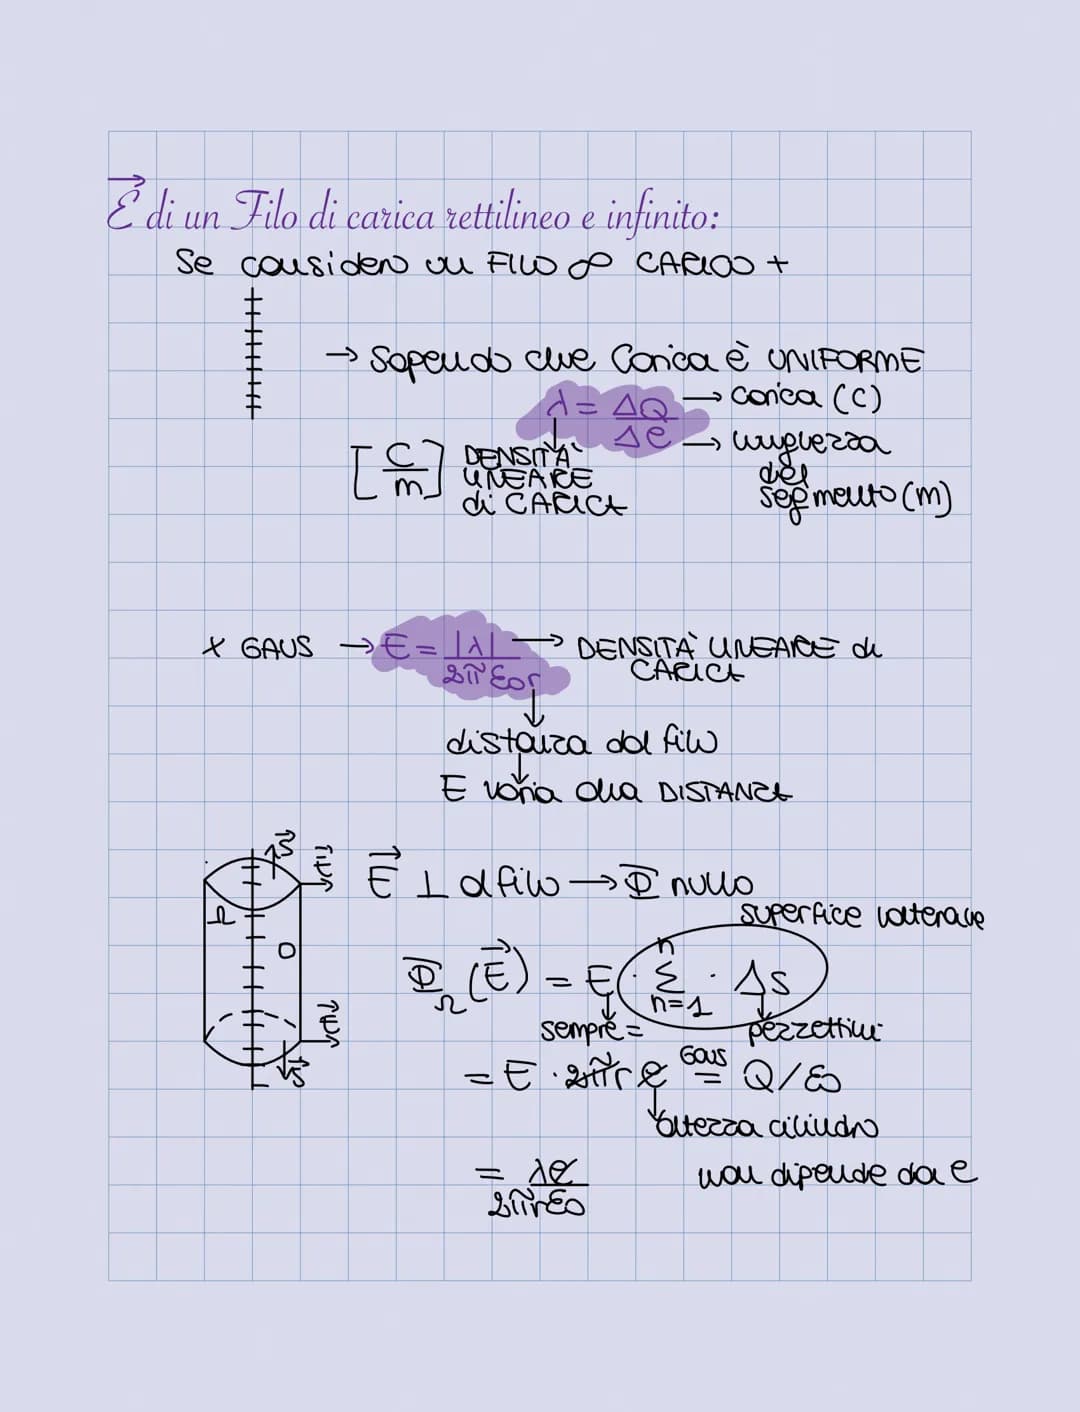 E di un Filo di carica rettilineo e infinito:
Se considero un FILO ∞ CARICO +
→ Sapendo che Carica è UNIFORME
λ = ΔQ/Δl → carica (C)
→ lunghezza del segmento (m)
[C/m] DENSITÀ
LINEARE
di CARICA
X GAUS → E = |λ|/2πε0r → DENSITÀ LINEARE di
CARICA
distanza dal filo
E varia alla DISTANZA
S
E
Ω
0
E
S
E ⊥ al filo → Φ nullo
superfice laterale
ΦΩ(E) = E · Σ n n=1 · ΔS
sempre = pezzettini
= E · 2πr l Gaus = Q/ε0
altezza cilindro
= λl/2πrε0 non dipende da l